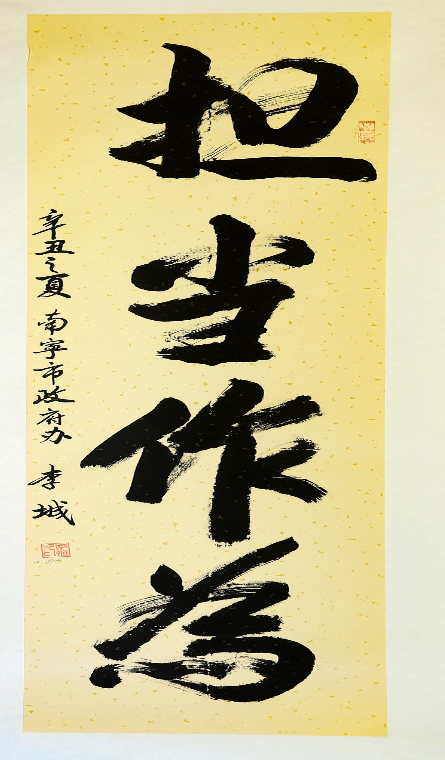 担当作為
辛丑之夏 南寧市政府办 李城